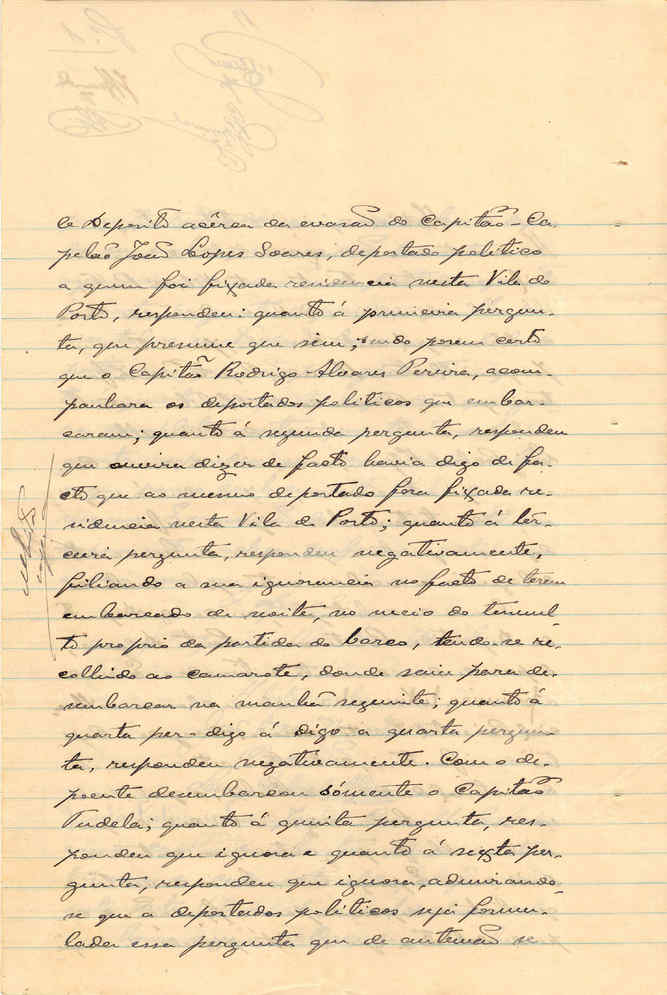 de Deposito acêrca da evasão do Capitão-Ca-
pelão João Lopes Soares, deportado politico
a quem foi fixada residencia nesta Vila do
Porto, respondeu: quanto á primeira pergun-
ta, que presume que sim, sendo porem certo
que o Capitão Rodrigo Alvares Pereira, acom-
panhara os deportados politicos que embar-
caram; quanto á segunda pergunta, respondeu
que ouvira dizer de facto havia digo de fa-
cto que ao mesmo deportado fora fixada re-
sidencia nesta Vila do Porto; quanto á ter-
ceira pergunta, respondeu negativamente,
filiando a sua ignorancia no facto de terem
embarcado de noite, no meio do tumul-
to proprio da partida do barco, tendo-se re-
colhido ao camarote, donde saiu para de-
sembarcar na manhã seguinte; quanto á
quarta per-digo á digo a quarta pergun-
ta, respondeu negativamente. Com o de-
poente desembarcou sómente o Capitão
Tudela; quanto á quinta pergunta, res-
pondeu que ignora e quanto á sexta per-
gunta, respondeu que ignora, admirando-
se que a deportados politicos seja formu-
lada essa pergunta que de antemão se